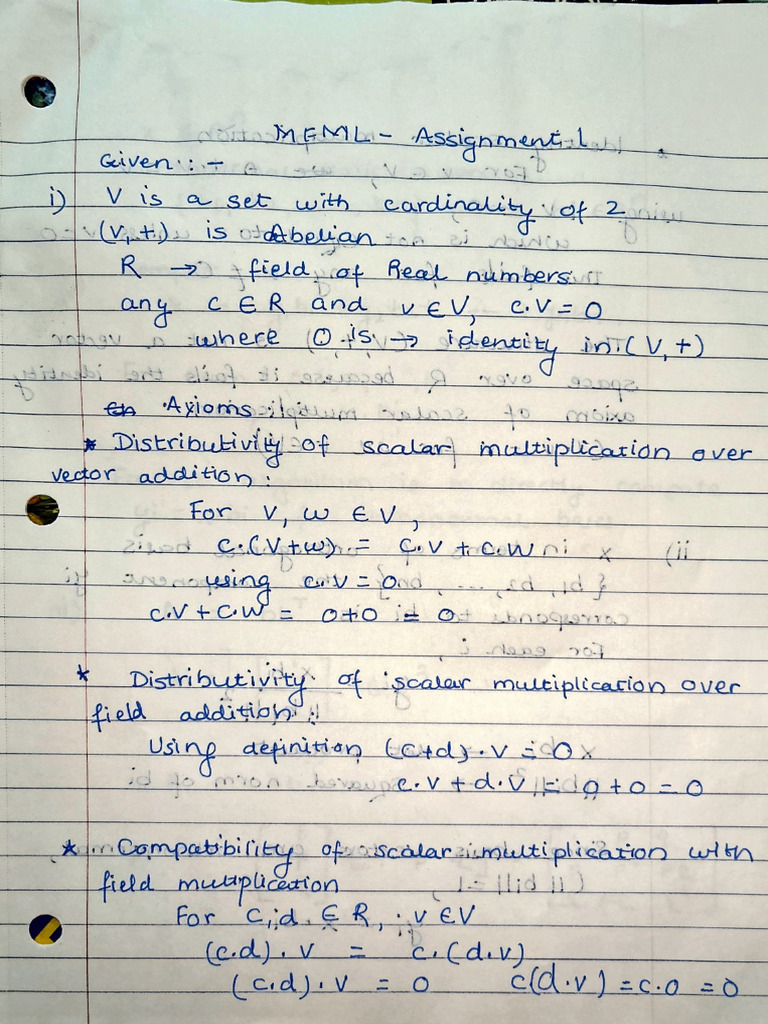 MFML - Assignment 1
Given :: -
i) V is a set with cardinality of 2
(V, +) is Abelian
R → field of Real numbers
any c ∈ R and v ∈ V, c.v = 0
where 0 is → identity in (V, +)
Axioms
* Distributivity of scalar multiplication over
vector addition :
For v, w ∈ V,
c.(v+w) = c.v + c.w
using c.v = 0
c.v + c.w = 0+0 = 0
* Distributivity of scalar multiplication over
field addition :
Using definition (c+d).v = 0
c.v + d.v = 0 + 0 = 0
* Compatibility of scalar multiplication with
field multiplication
For c, d ∈ R, v ∈ V
(c.d).v = c.(d.v)
(c.d).v = 0 c(d.v) = c.0 = 0